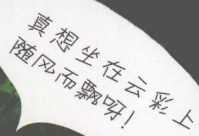 真想坐在云彩上
随风而飘呀!